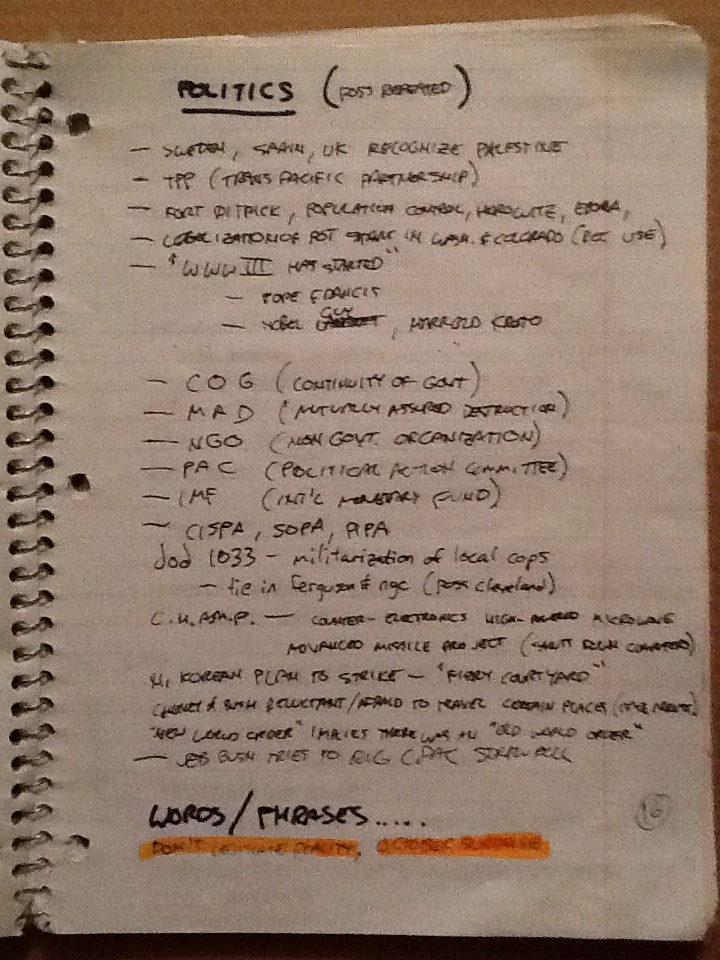 POLITICS (POSS REPEATED)
— SWEDEN, SPAIN, UK RECOGNIZE PALESTINE
— TPP (TRANS PACIFIC PARTNERSHIP)
— FORT DITRICK, POPULATION CONTROL, HOROWITZ, EBOLA,
— LEGALIZATION OF POT START IN WASH. & COLORADO (REC USE)
— "WWW III HAS STARTED"
— POPE FRANCIS
— NOBEL GUY, HARROLD KROTO
— COG (CONTINUITY OF GOVT)
— MAD (MUTUALLY ASSURED DESTRUCTION)
— NGO (NON GOVT. ORGANIZATION)
— PAC (POLITICAL ACTION COMMITTEE)
— IMF (INT'L MONETARY FUND)
— CISPA, SOPA, PIPA
dod 1033 - militarization of local cops
— tie in ferguson & nyc (poss cleveland)
C.H.A.M.P. — COUNTER-ELECTRONICS HIGH-POWERED MICROWAVE
ADVANCED MISSILE PROJECT (SHUTS DOWN COMPUTERS)
N. KOREAN PLAN TO STRIKE - "FIERY COURTYARD"
CHENEY & BUSH RELUCTANT/AFRAID TO TRAVEL CERTAIN PLACES
"NEW WORLD ORDER" IMPLIES THERE WAS AN "OLD WORLD ORDER"
— JEB BUSH TRIES TO RIG CPAC STRAW POLL
WORDS/PHRASES.....
16
DON'T REALITY, OCTOBER SURPRISE